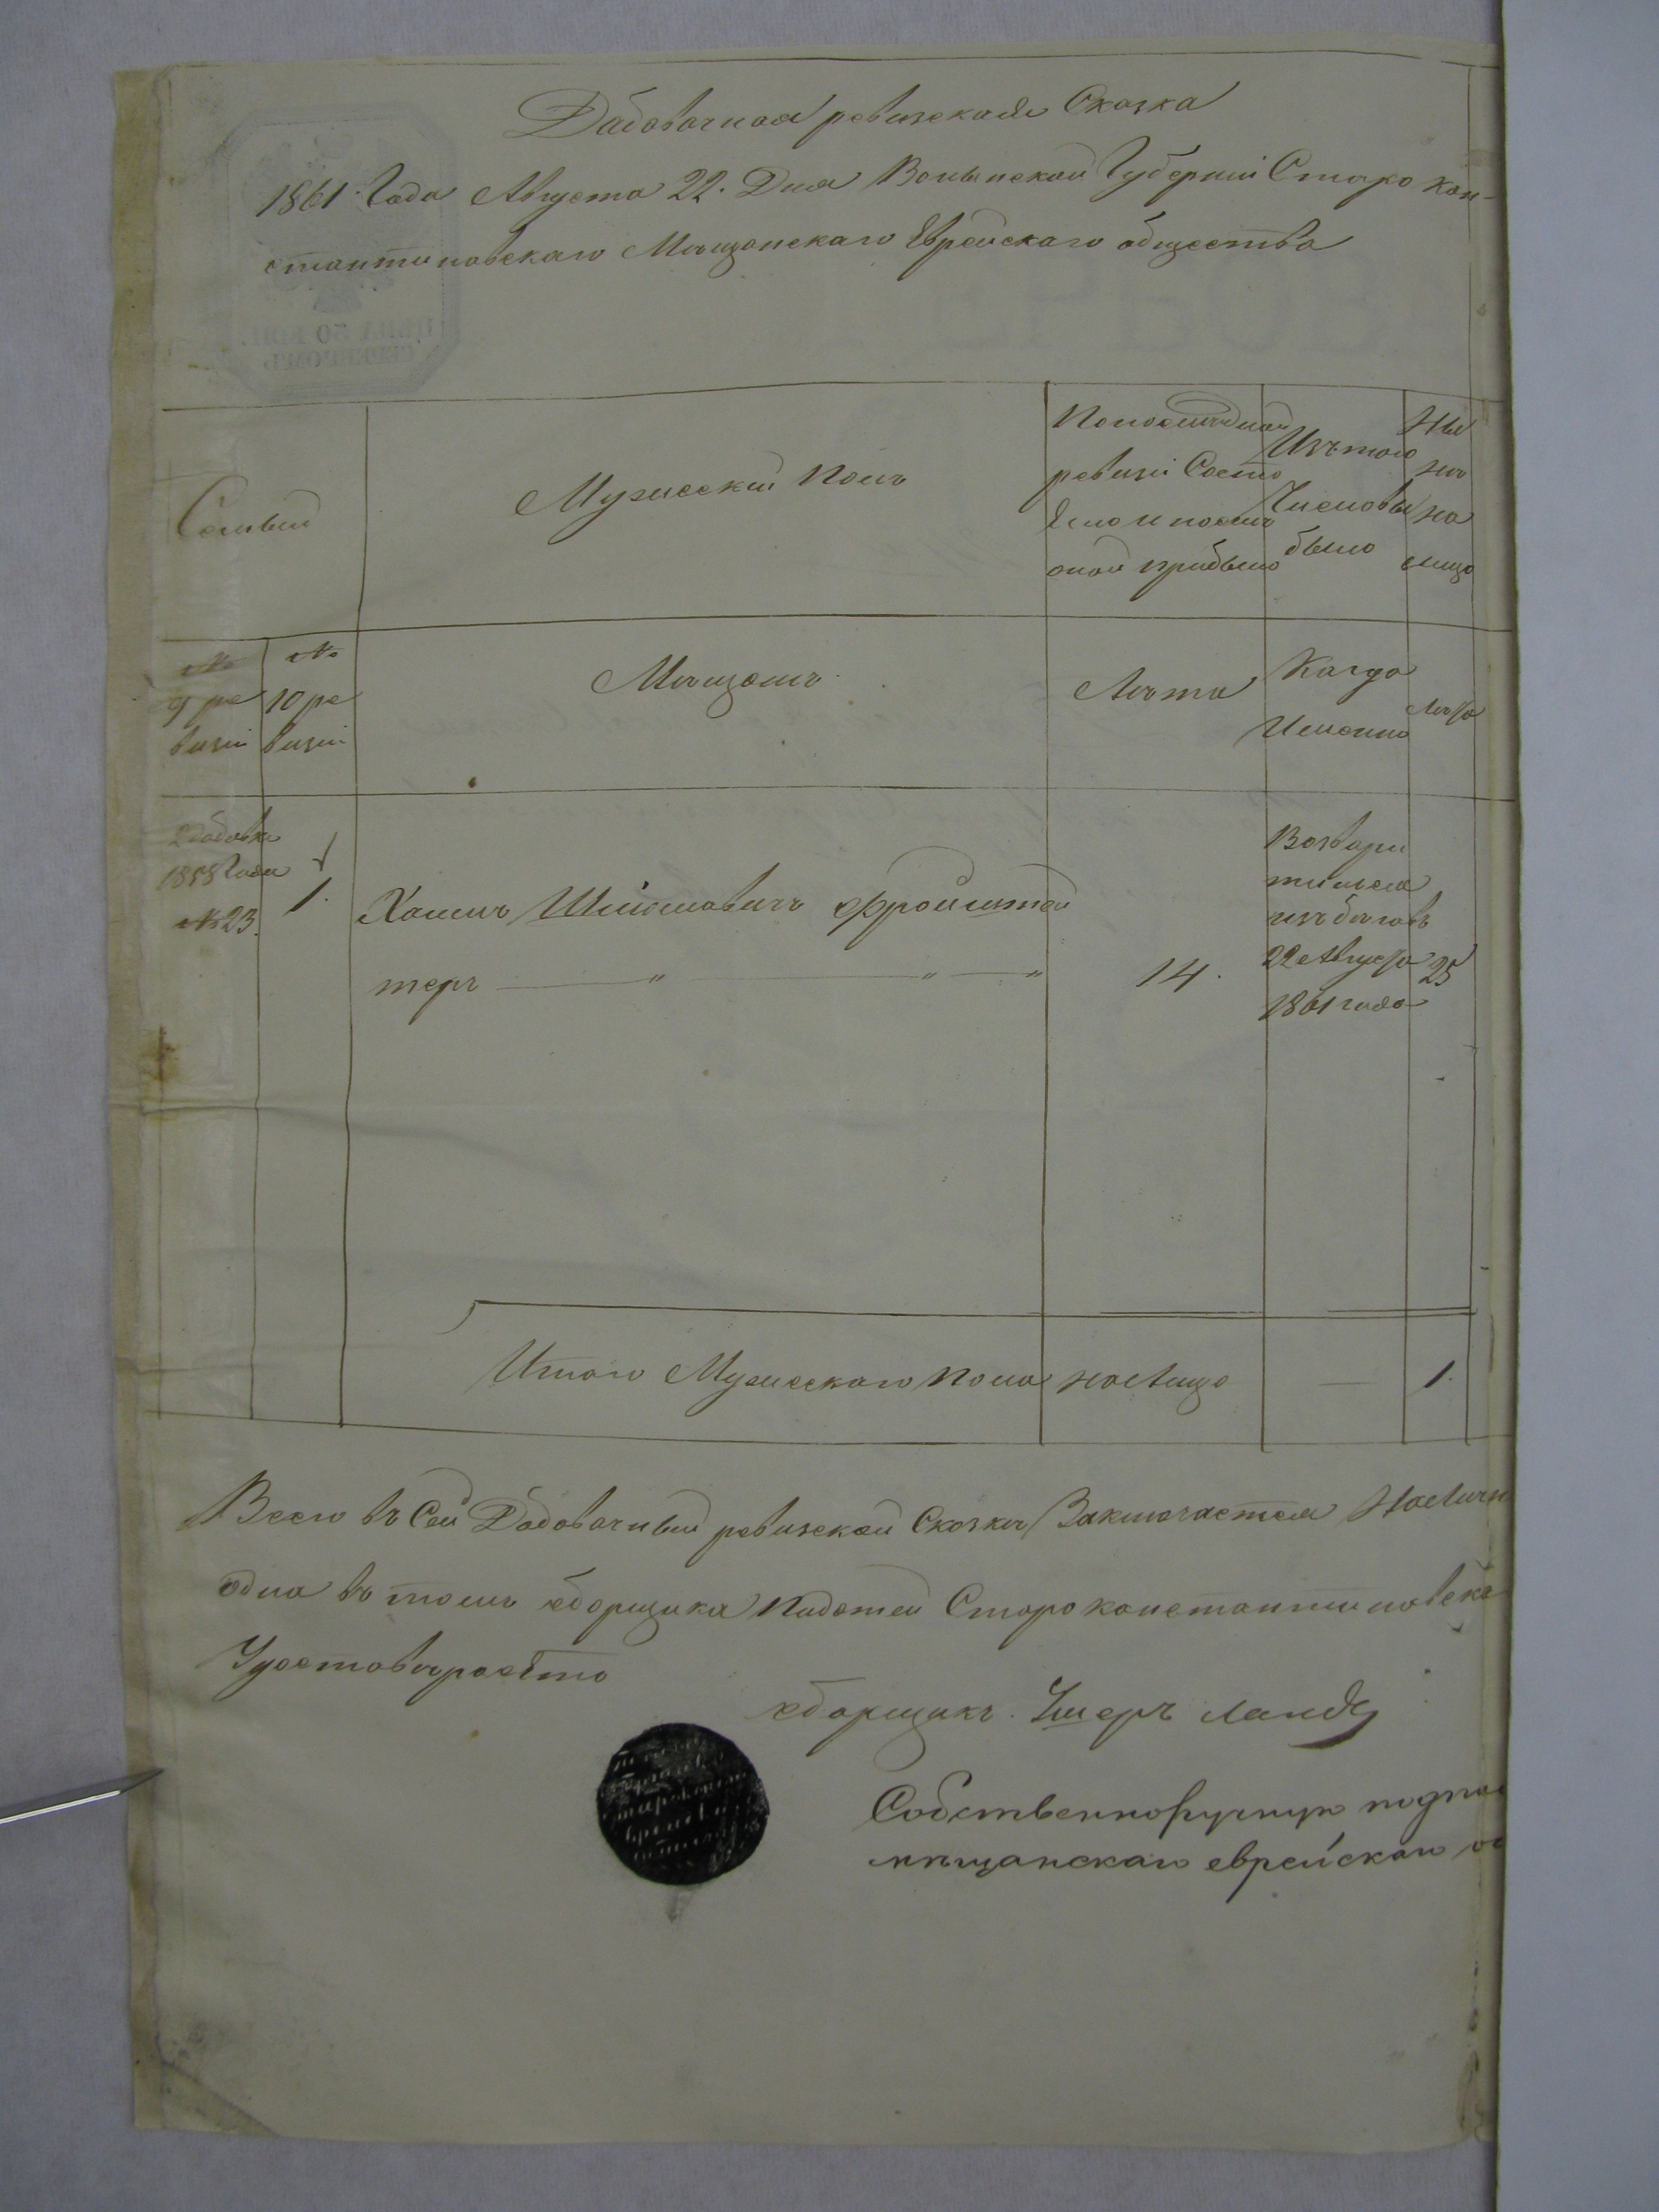 Дабовочная ревизская Сказка
1861 Года Августа 22. Дня Волынской Губерніи Старо кон-
стантиновскаго Мѣщанскаго Еврейскаго общества
ЦѢНА 50 КОП.
СЕРЕБРОМЪ
Семьи
Мужескій Полъ
Попослѣдней
ревизіи Состо
яло и послѣ
оной прибыло
Изътого
Числовы
было
Ны
нѣ
на
лицо
№
9 ре
визіи
№
10 ре
визіи
Мѣщанъ
Лѣта
Когда
Именно
Лѣта
2 добовки
1858 Года
№ 23.
1.
Хаимъ Шліомовичъ Фройштей
теръ
14.
Возвра
тился
изъ бѣговъ
22 Августа
1861 года
25
Итого Мужескаго Пола налицо — 1.
Всего въ Сей Дабовочный ревизской Сказки Заключается Налич
одна въ томъ сборщика Податей Староконстантиновска
Удостовѣряетто
сборщикъ. Ушеръ Ландѣ
Собственноручную подпи
мѣщанскаго еврейскаго о